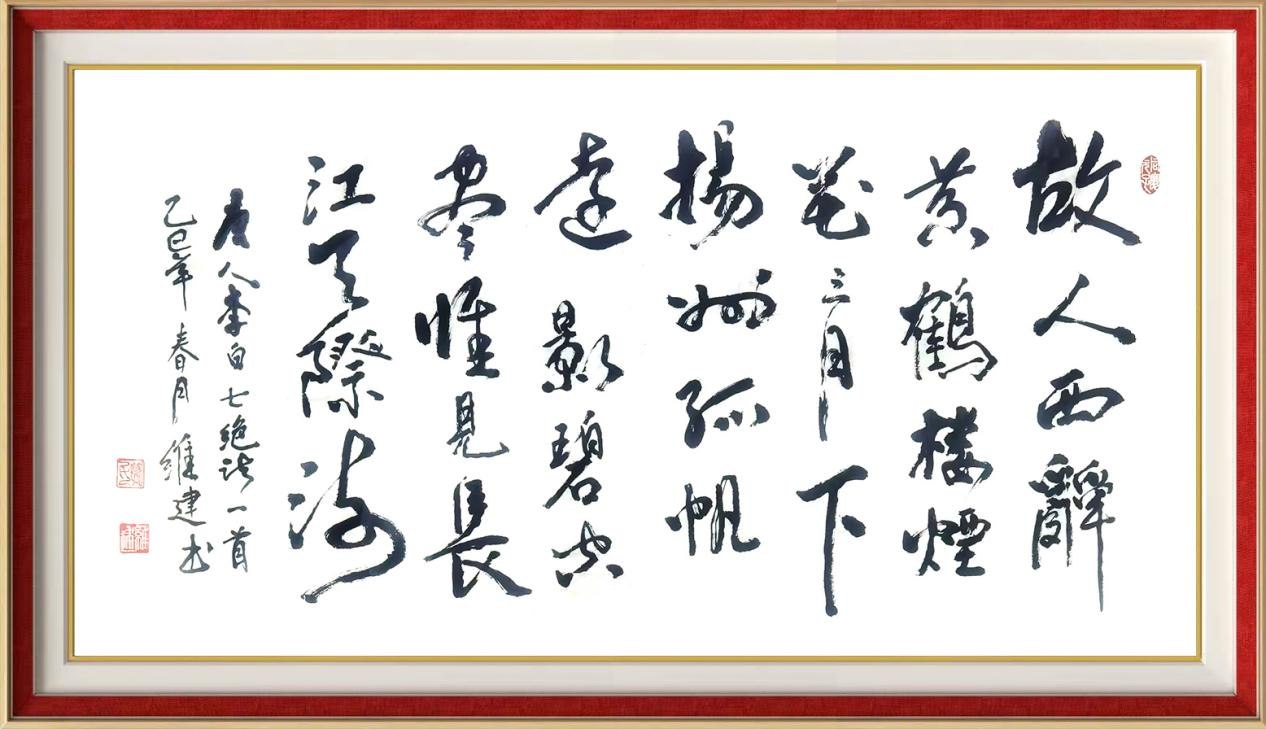 故人西辭
黄鶴楼煙
花三月下
揚州孤帆
遠影碧空
盡惟見長
江天際流
唐人李白七絶詩一首
乙巳年春月維建书